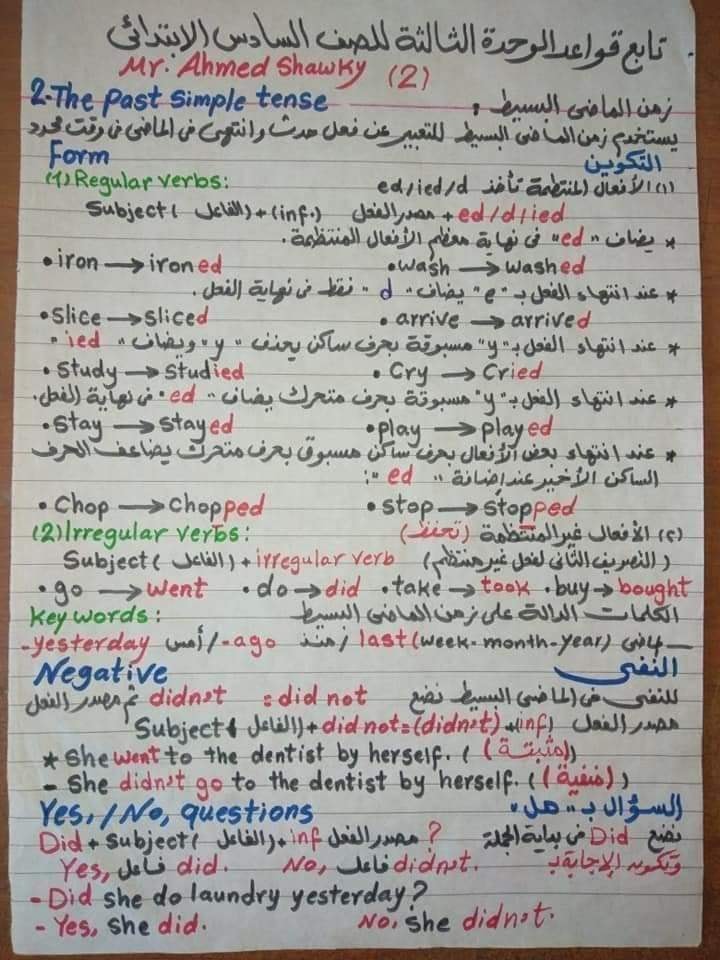 تابع قواعد الوحدة الثالثة للصف السادس الابتدائى
Mr. Ahmed Shawky (2)
2-The Past Simple tense زمن الماضى البسيط :
يستخدم زمن الماضى البسيط للتعبير عن فعل حدث وانتهى فى الماضى فى وقت محدد
Form التكوين
(1) Regular verbs: (١) الأفعال المنتظمة تأخذ ed/ied/d
Subject (الفاعل) + (inf.) مصدر الفعل + ed/d/ied
* يضاف "ed" فى نهاية معظم الأفعال المنتظمة.
• iron → ironed • wash → washed
* عند انتهاء الفعل بـ "e" يضاف "d" فقط فى نهاية الفعل.
• Slice → sliced • arrive → arrived
* عند انتهاء الفعل بـ "y" مسبوقة بحرف ساكن يحذف "y" ويضاف "ied"
• Study → studied • Cry → Cried
* عند انتهاء الفعل بـ "y" مسبوقة بحرف متحرك يضاف "ed" فى نهاية الفعل.
• Stay → stayed • play → played
* عند انتهاء بعض الأفعال بحرف ساكن مسبوق بحرف متحرك يضاعف الحرف
الساكن الأخير عند إضافة "ed":
• Chop → Chopped • stop → stopped
(2) Irregular verbs: (٢) الأفعال غير المنتظمة (تحفظ)
Subject (الفاعل) + irregular verb (التصريف الثانى لفعل غير منتظم)
• go → went • do → did • take → took • buy → bought
Key words: الكلمات الدالة على زمن الماضى البسيط
-yesterday أمس / -ago منذ / last (week-month-year) ماضى
Negative النفى
للنفى فى الماضى البسيط نضع didn't = did not ثم مصدر الفعل
Subject (الفاعل) + did not = (didn't) + inf) مصدر الفعل
* She went to the dentist by herself. (مثبتة)
- She didn't go to the dentist by herself. (منفية)
Yes,/No, questions السؤال بـ "هل"
Did + Subject (الفاعل) + inf مصدر الفعل ? نضع Did فى بداية الجملة
Yes, فاعل did. No, فاعل didn't. وتكون الإجابة بـ
- Did she do laundry yesterday?
- Yes, she did. No, she didn't.